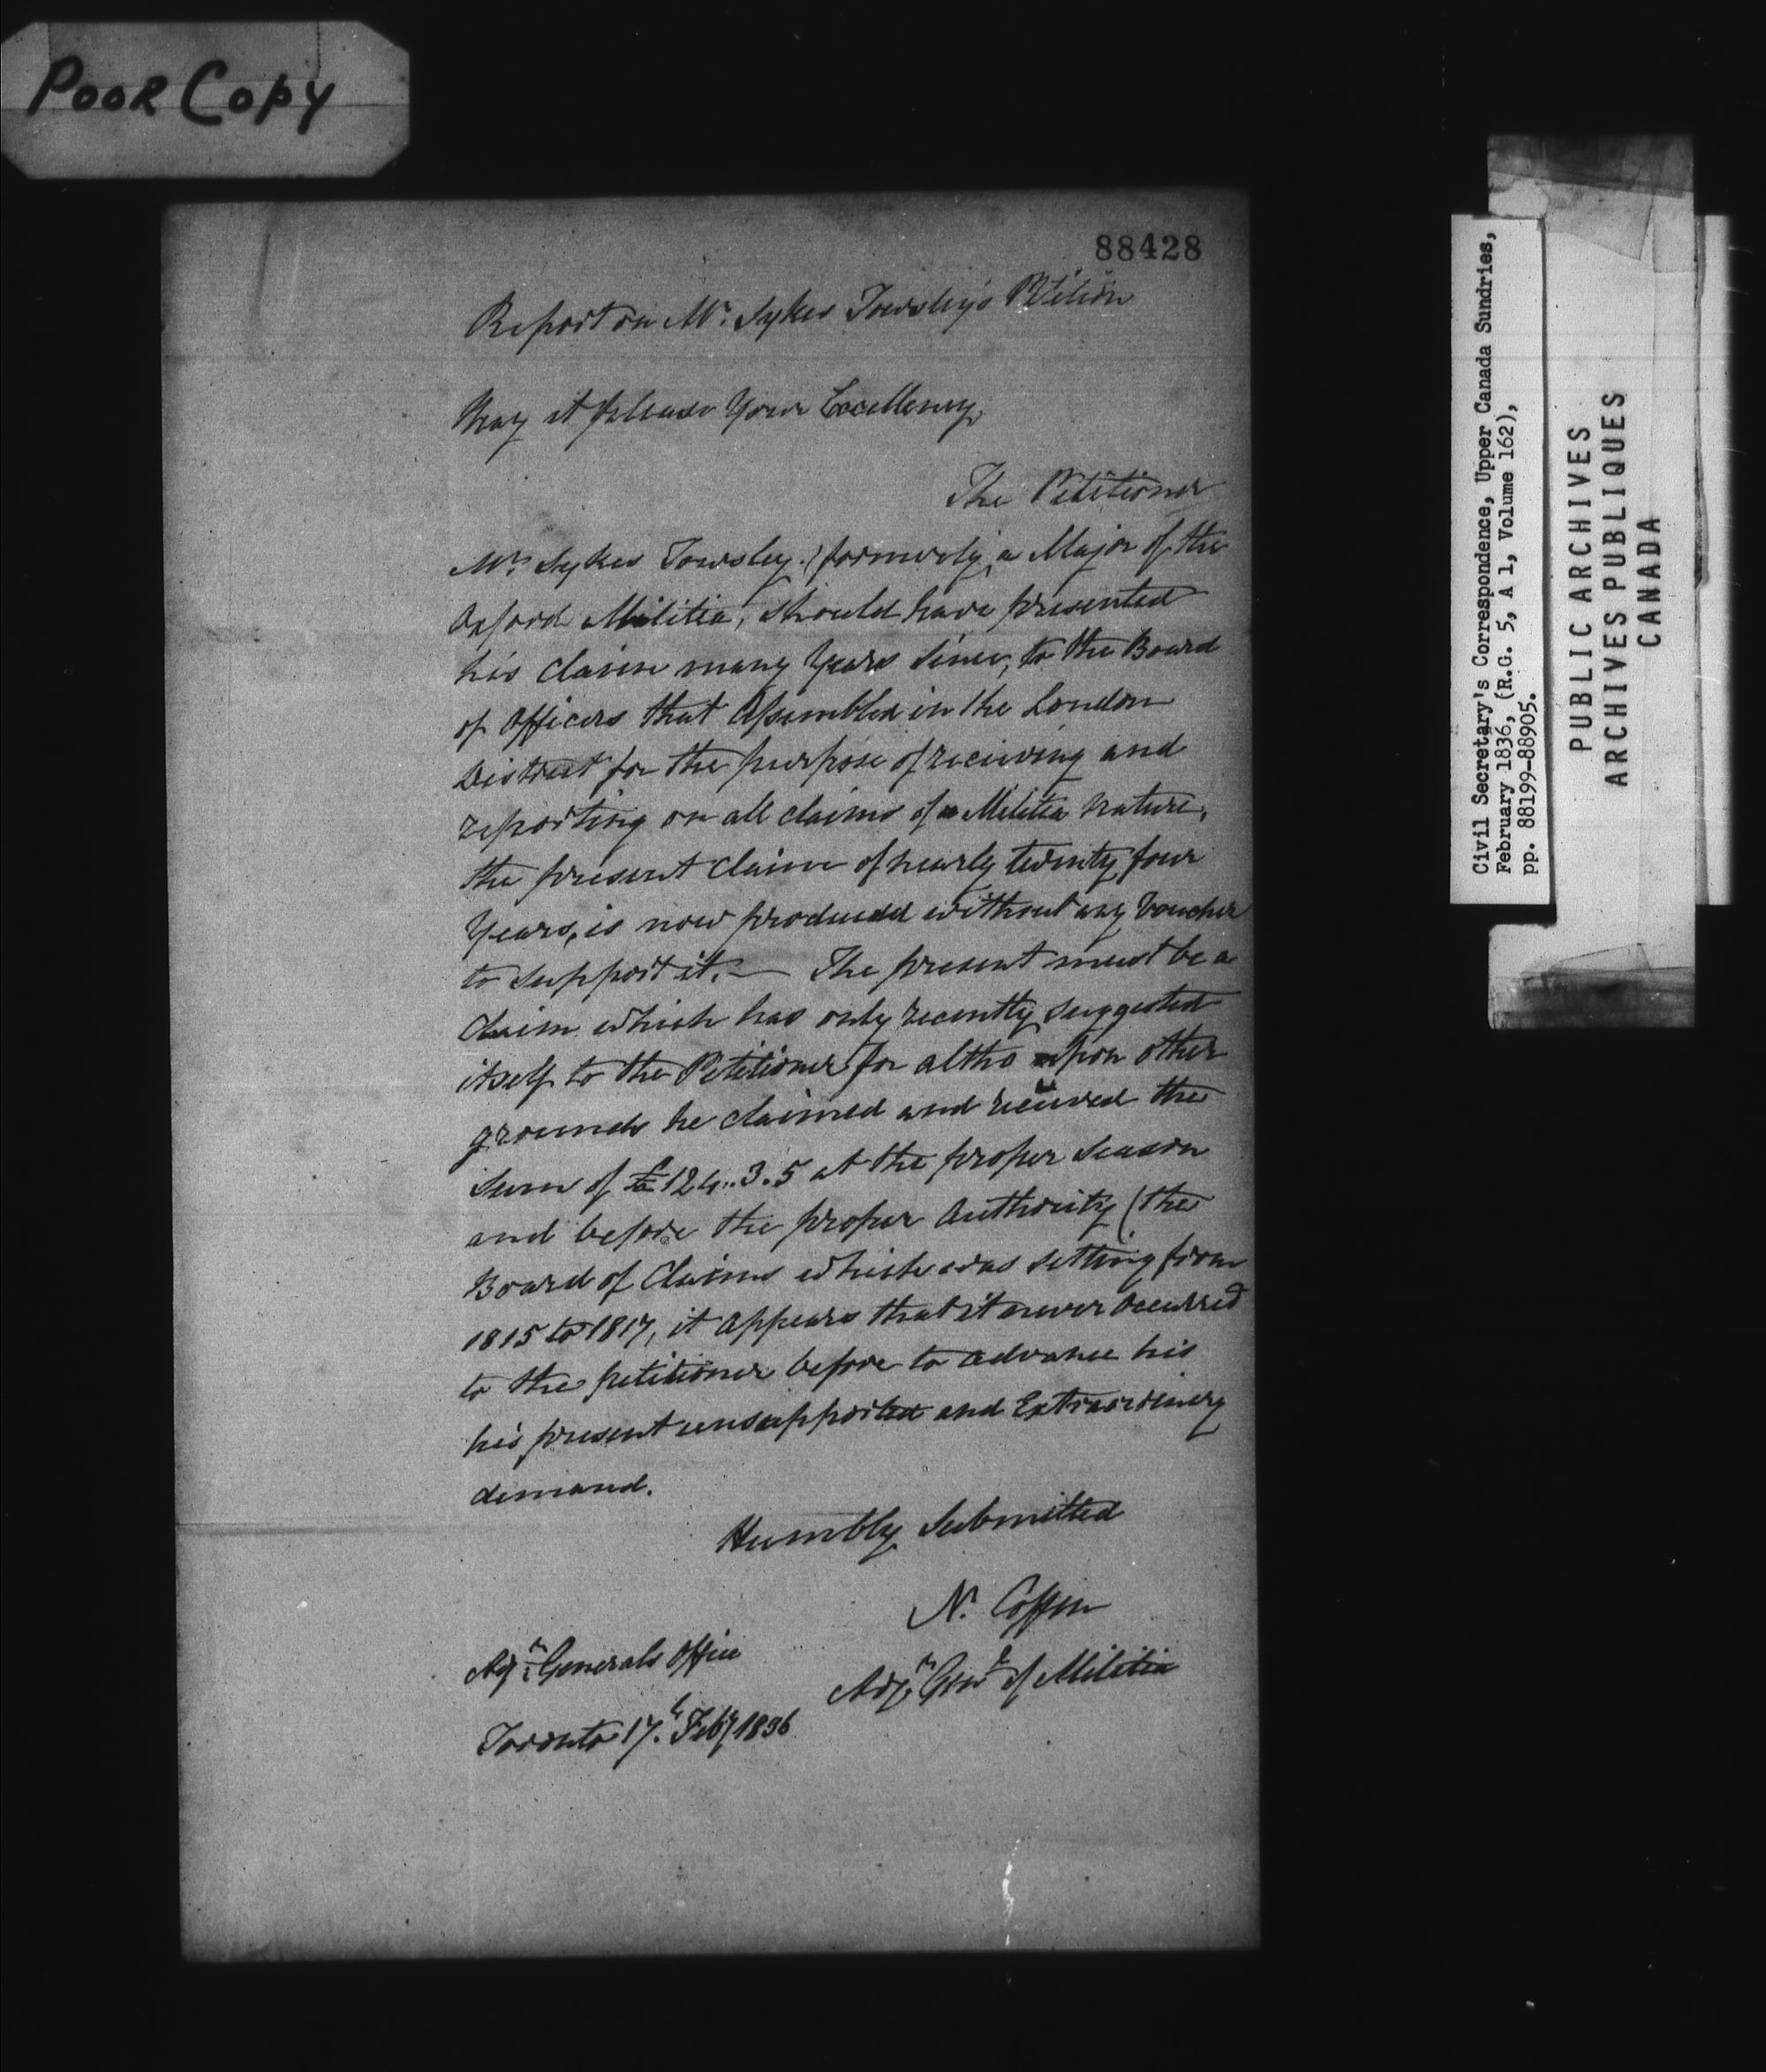 POOR COPY
88428
Report on Mr. Sykes Towsley's Petition
May it please Your Excellency,
The Petitioner
Mr. Sykes Towsley (formerly a Major of the
Oxford Militia, should have presented
his Claim many Years since, to the Board
of Officers that Assembled in the London
District for the purpose of receiving and
reporting on all claims of a Militia Nature,
the present Claim of nearly twenty four
Years, is now produced without any Voucher
to support it.— The present must be a
Claim which has only recently suggested
itself to the Petitioner for altho upon other
grounds he claimed and received the
Sum of £124..3.5 at the proper Season
and before the proper Authority (the
Board of Claims which was sitting from
1815 to 1817, it appears that it never occurred
to the petitioner before to advance his
his present unsupported and Extraordinery
demand.
Humbly Submitted
N. Coffin
Adjt. Genl. of Militia
Adjt. Generals Office
Toronto 17th Feby 1836
Civil Secretary's Correspondence, Upper Canada Sundries,
February 1836, (R.G. 5, A 1, Volume 162),
pp. 88199-88905.
PUBLIC ARCHIVES
ARCHIVES PUBLIQUES
CANADA